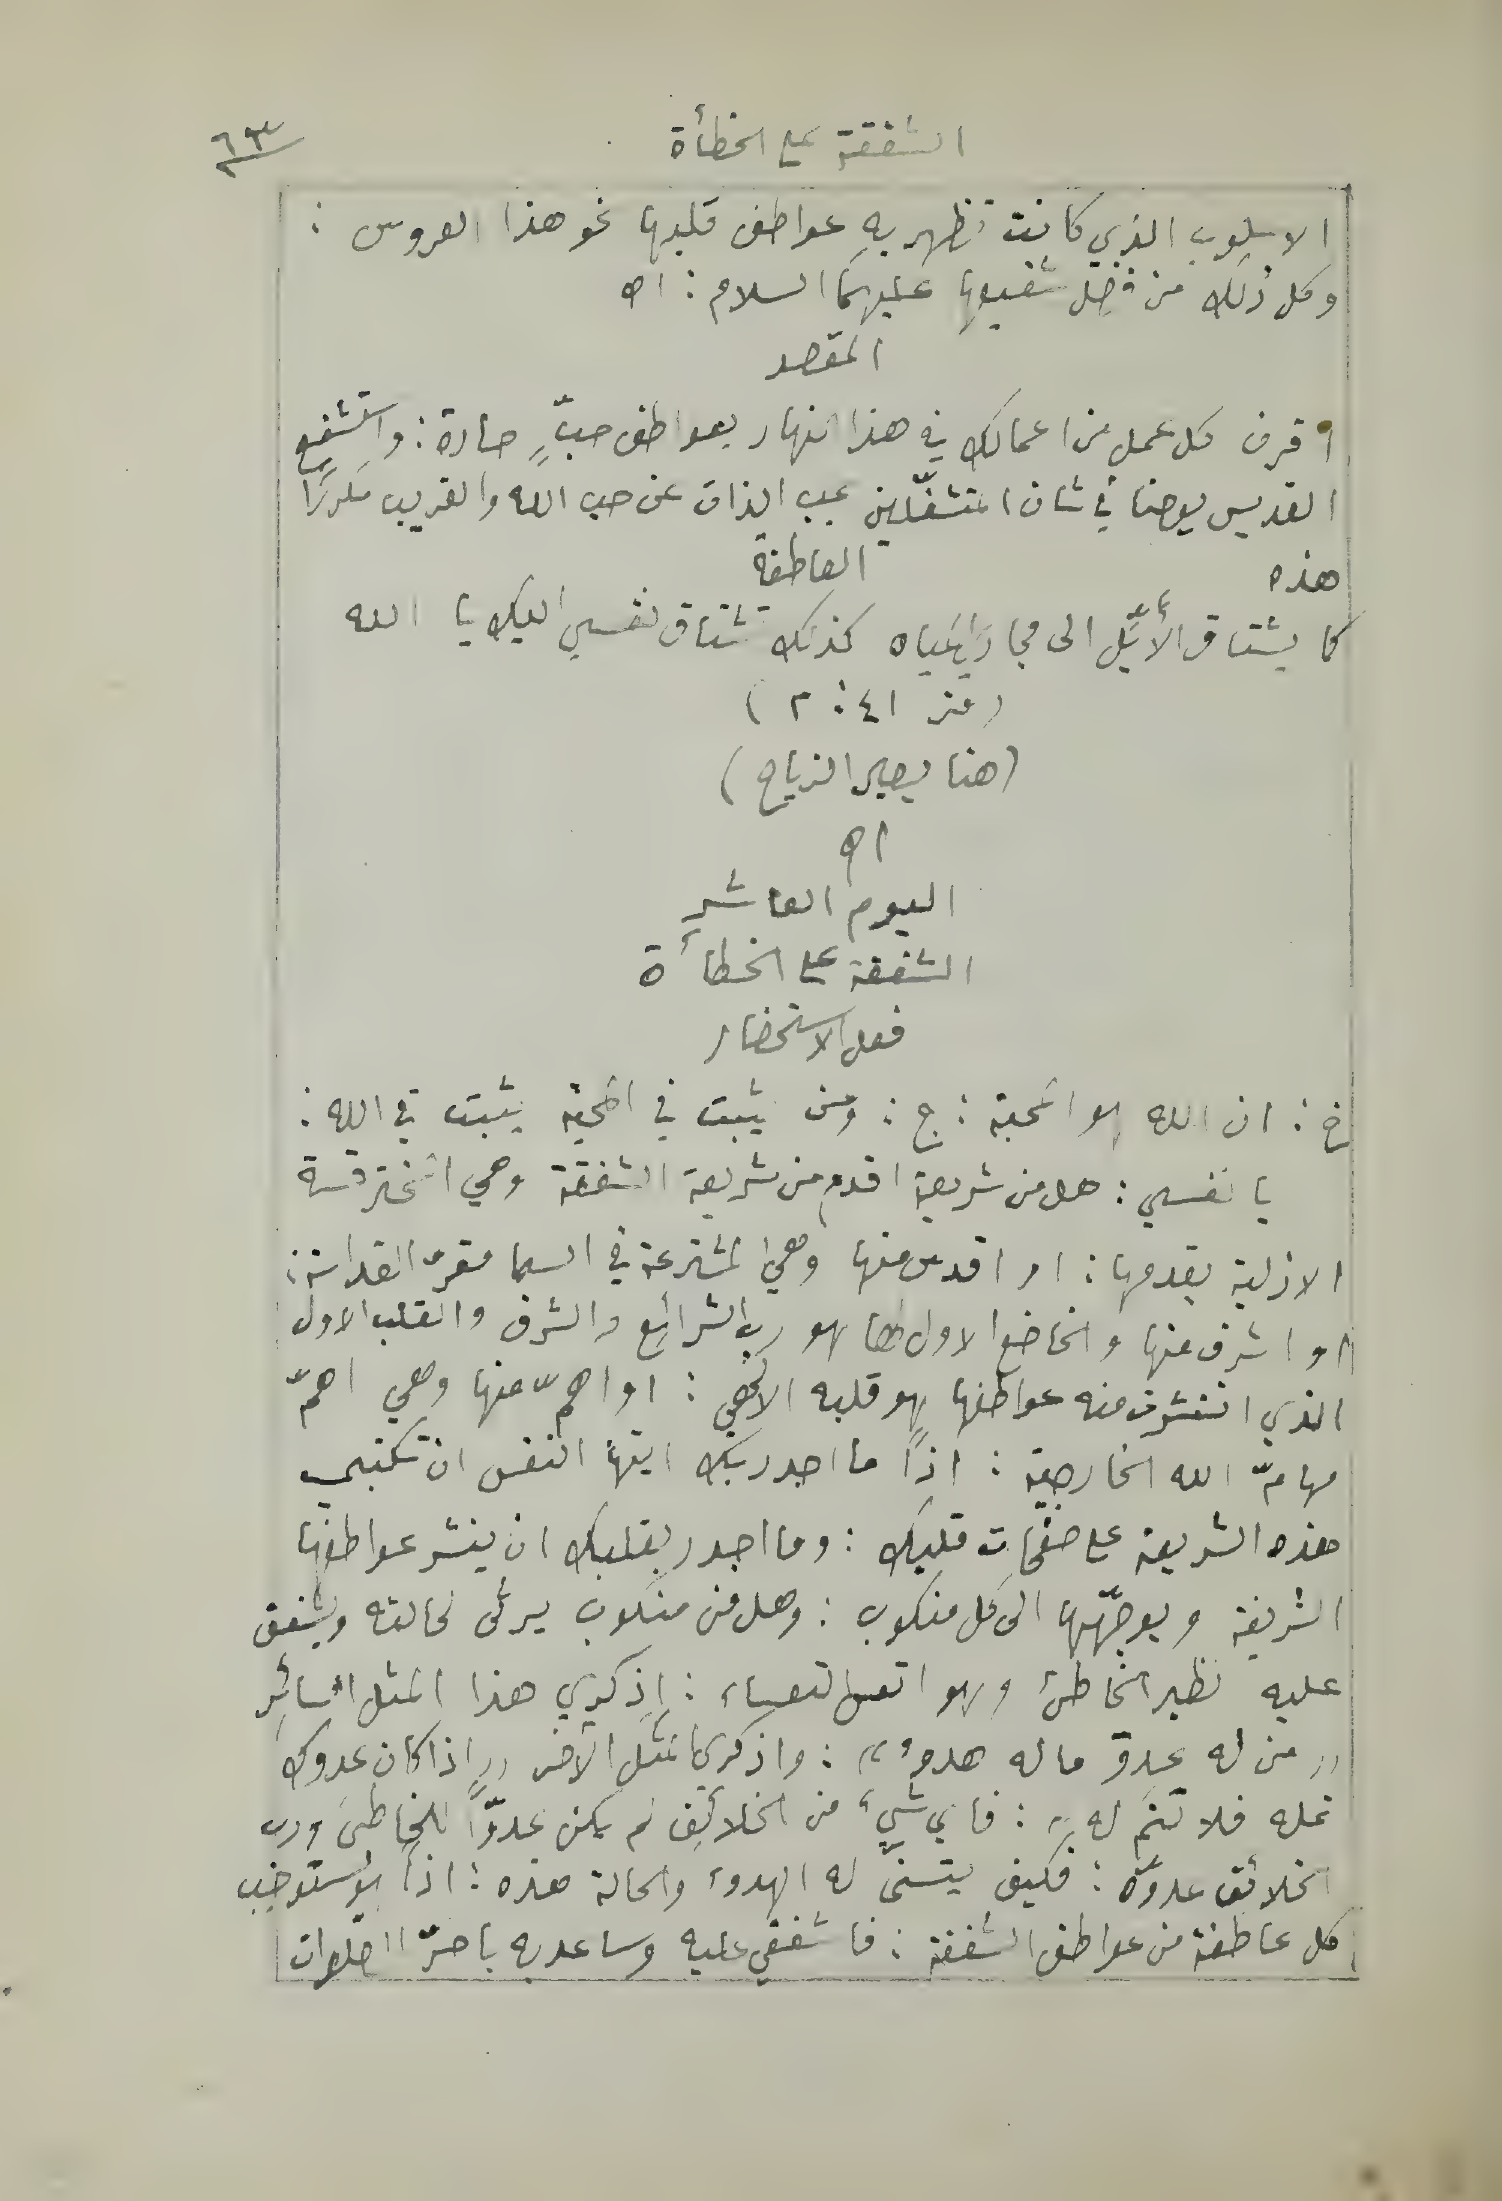 الشفقة على الخطأة
٦٣
الاسلوب الذي كانت تظهر به عواطف قلبها نحو هذا العروس :
وكل ذلك من فضل شفيعها عليهما السلام : اه
المقصد
اقرن كل عمل من اعمالك في هذا النهار بعواطف حبٍّ حارة : واستشفع
القديس يوحنا في شان المنشغلين بحب الذات عن حب الله والقريب مكررًا
هذه
العاطفة
كما يشتاق الأيّل الى مجاري المياه كذلك تشتاق نفسي اليك يا الله
( مز ٤١ : ٢ )
(هنا يصير الزياح )
اه
اليوم العاشر
الشفقة على الخطأة
فعل الاستحضار
خ : ان الله هو المحبة : ج : ومن يثبت في المحبة يثبت في الله :
يا نفسي : هل من شريعة اقدم من شريعة الشفقة وهي
الازلية بقدمها : او اقدس منها وهي المشترعة في السما مقرّ القداسة :
او اشرف منها والخاضع الاول لها هو رب الشرائع والشرف والقلب الاول
الذي انتشرت منه عواطفها هو قلبه الالهي : او اهمّ منها وهي اهمّ
مهامّ الله الخارجية : اذًا ما اجدر بك ايتها النفس ان تكتبي
هذه الشريعة على صفحات قلبك : وما اجدر بقلبك ان ينشر عواطفها
الشريفة ويوجّهها الى كل منكوب : وهل من منكوب يرثى لحالته ويشفق
عليه نظير الخاطئ وهو اتعس التعساء : اذكري هذا المثل السائر
«من له عدوّ ما له هدوء» : واذكري المثل الآخر «اذا كان عدوك
نمله فلا تنم له» : فاي شيء من الخلائق لم يكن عدوًّا للخاطئ ورب
الخلائق عدوّه : فكيف يتسنّى له الهدوء والحالة هذه : اذًا هو يستوجب
كل عاطفة من عواطف الشفقة : فاشفقي عليه وساعديه باحرّ الصلوات